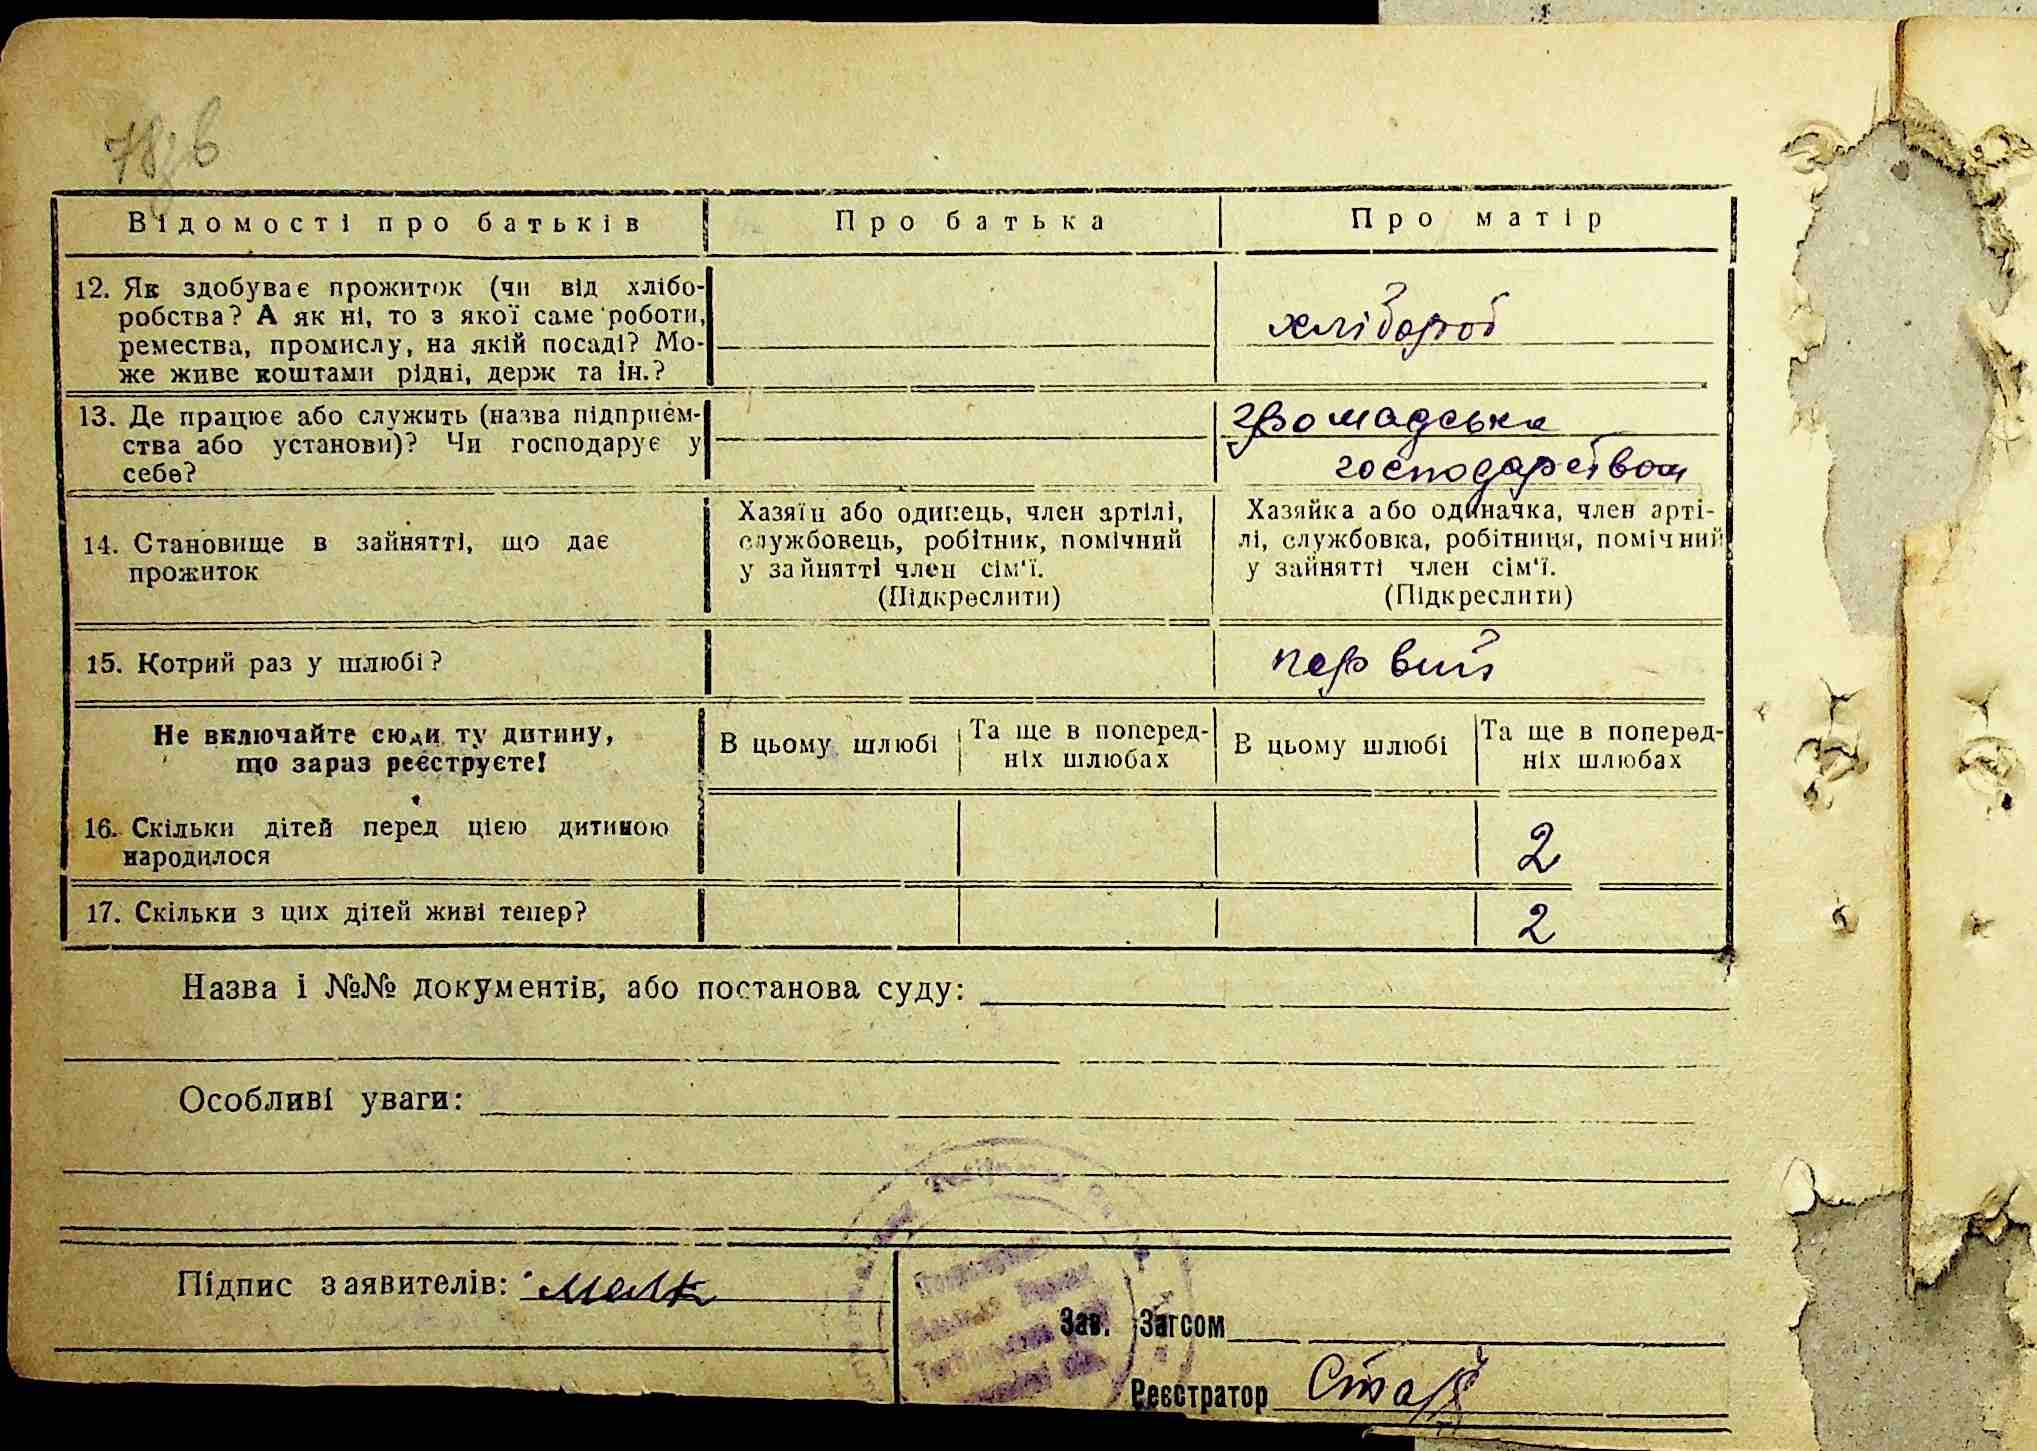 Відомості про батьків Про батька Про матір
12. Як здобуває прожиток (чи від хлібо-
робства? А як ні, то з якої саме роботи,
ремества, промислу, на якій посаді? Мо-
же живе коштами рідні, держ та ін.?
хлібороб
13. Де працює або служить (назва підприєм-
ства або установи)? Чи господарує у
себе?
громадське
господарство
14. Становище в зайнятті, що дає
прожиток
Хазяїн або одинець, член артілі,
службовець, робітник, помічний
у зайнятті член сім'ї.
(Підкреслити)
Хазяйка або одиначка, член арті-
лі, службовка, робітниця, помічний
у зайнятті член сім'ї.
(Підкреслити)
15. Котрий раз у шлюбі?
первий
Не включайте сюди ту дитину,
що зараз реєструєте!
В цьому шлюбі
Та ще в поперед-
ніх шлюбах
В цьому шлюбі
Та ще в поперед-
ніх шлюбах
16. Скільки дітей перед цією дитиною
народилося
2
17. Скільки з цих дітей живі тепер?
2
Назва і №№ документів, або постанова суду:
Особливі уваги:
Підпис заявителів:
Зав. Загсом
Реєстратор